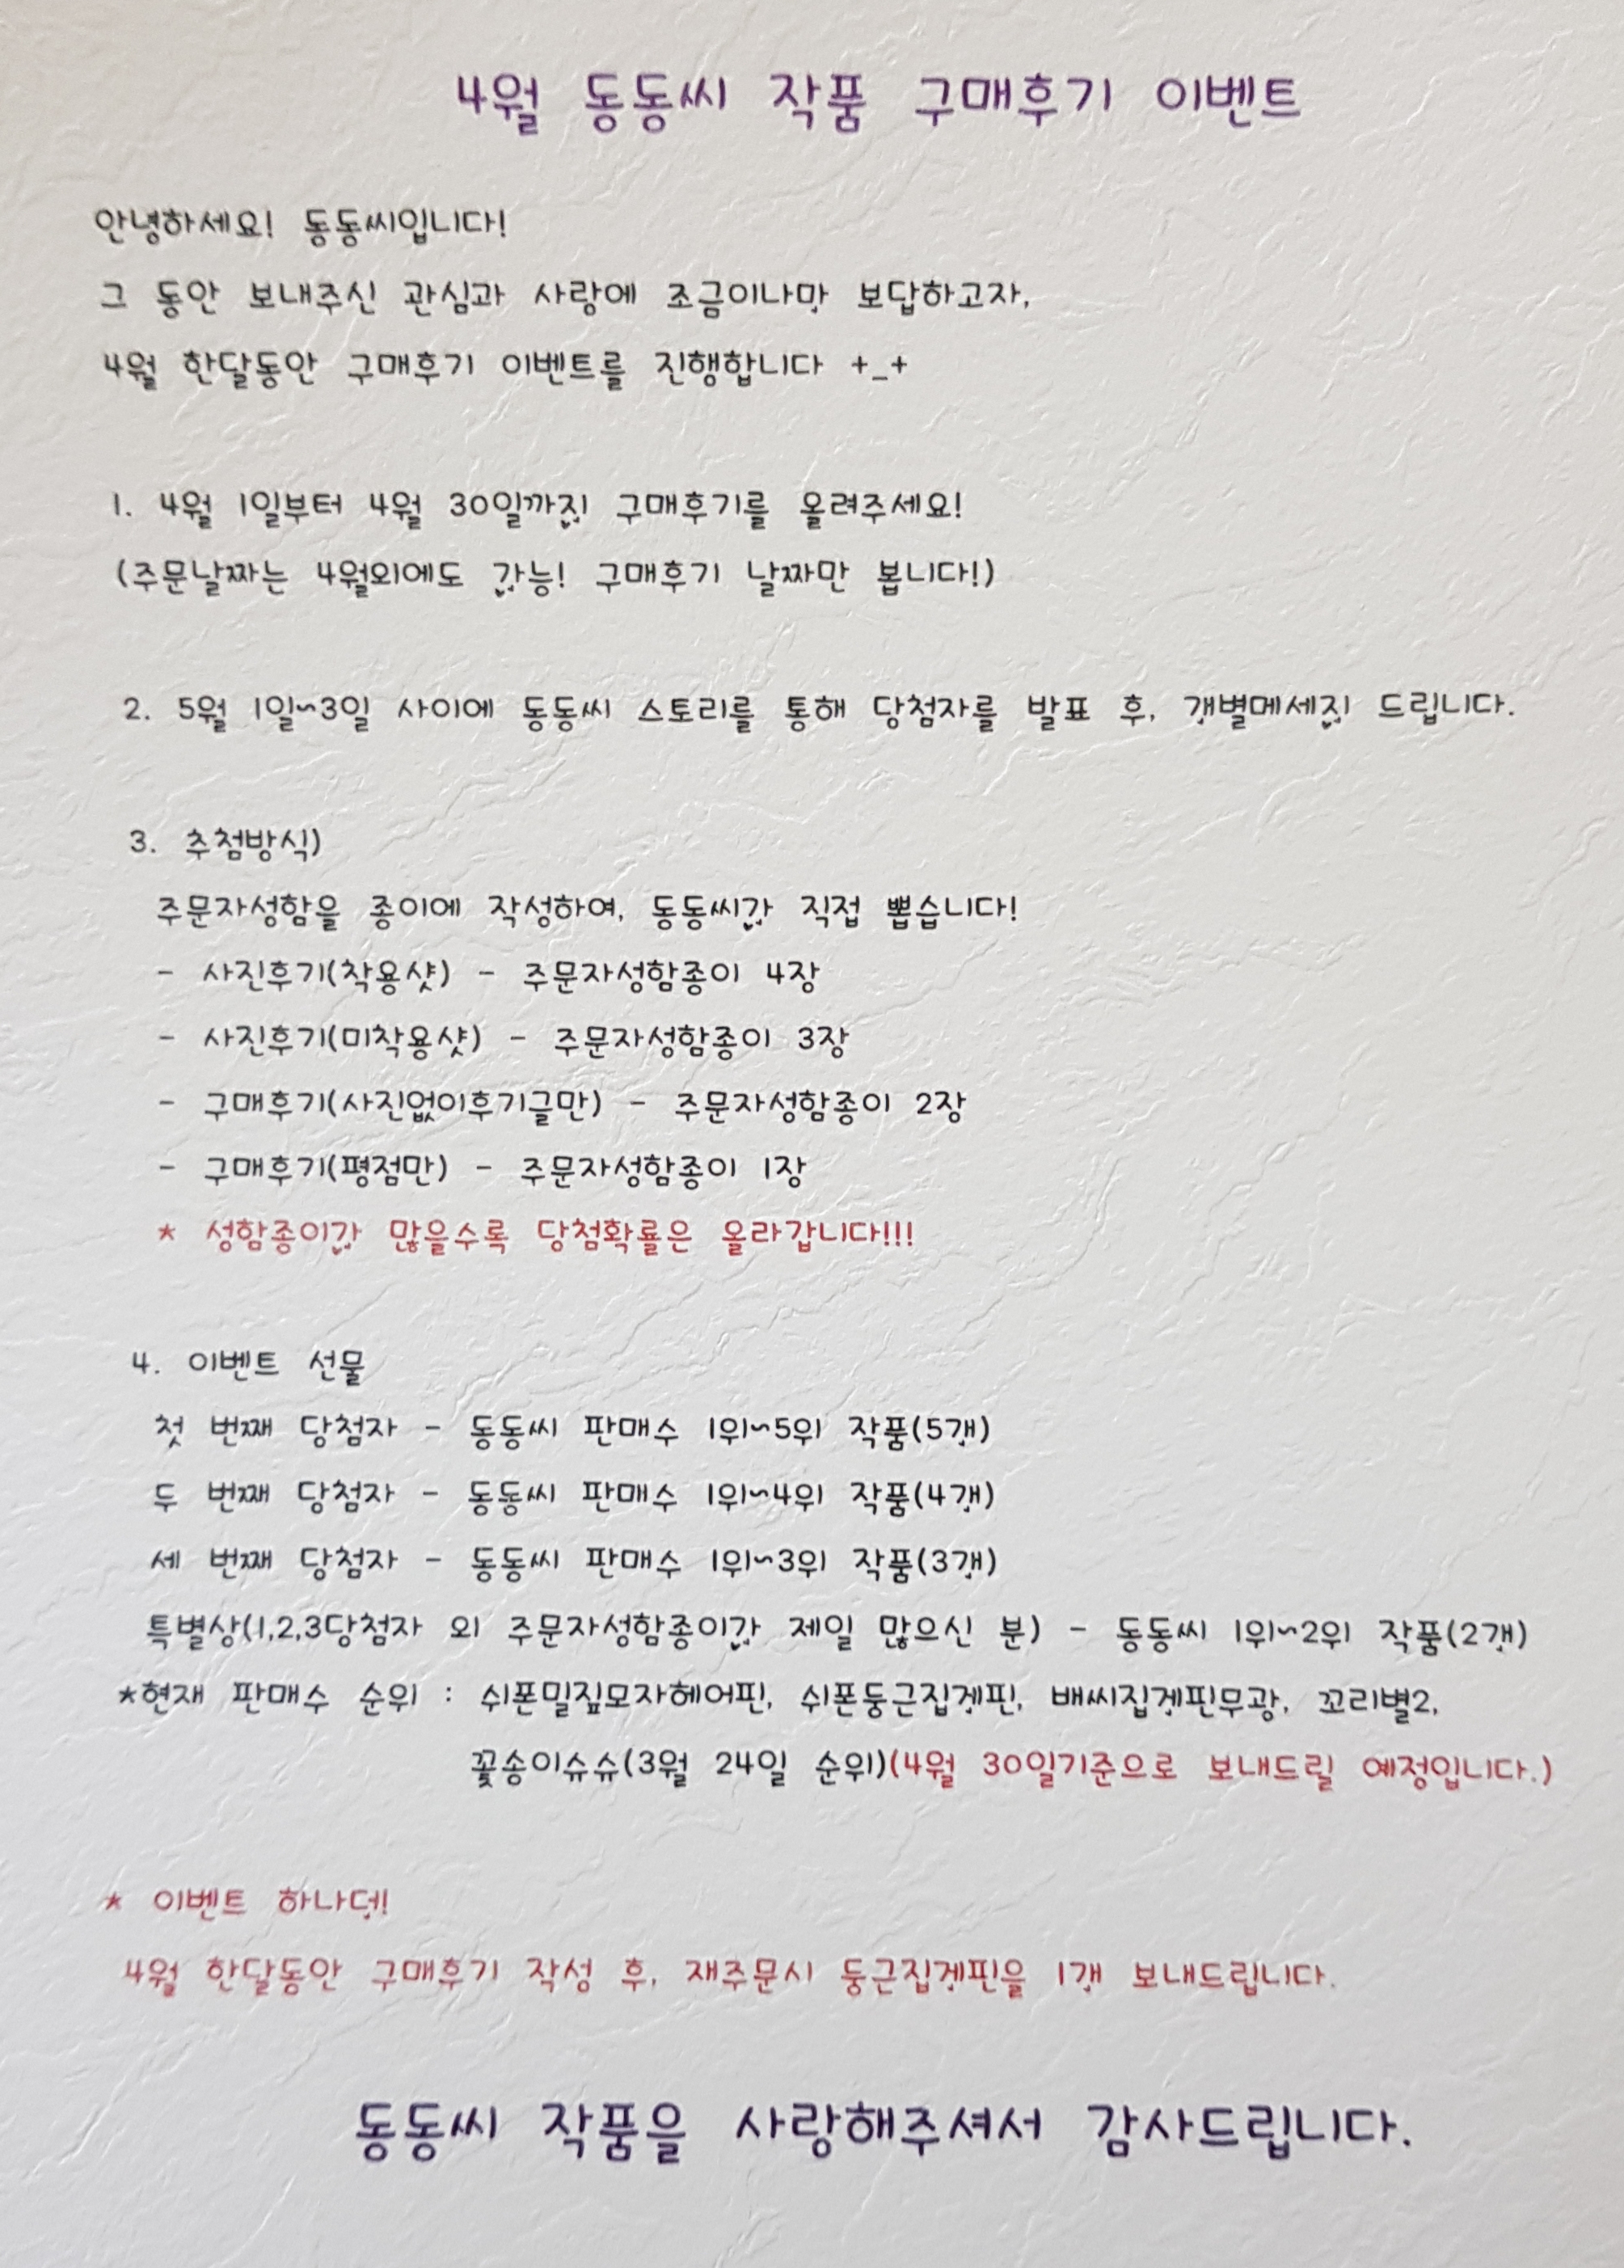 4월 동동씨 작품 구매후기 이벤트
안녕하세요! 동동씨입니다!
그 동안 보내주신 관심과 사랑에 조금이나마 보답하고자,
4월 한달동안 구매후기 이벤트를 진행합니다 +_+
1. 4월 1일부터 4월 30일까지 구매후기를 올려주세요!
(주문날짜는 4월외에도 가능! 구매후기 날짜만 봅니다!)
2. 5월 1일~3일 사이에 동동씨 스토리를 통해 당첨자를 발표 후, 개별메세지 드립니다.
3. 추첨방식)
주문자성함을 종이에 작성하여, 동동씨가 직접 뽑습니다!
- 사진후기(착용샷) - 주문자성함종이 4장
- 사진후기(미착용샷) - 주문자성함종이 3장
- 구매후기(사진없이후기글만) - 주문자성함종이 2장
- 구매후기(평점만) - 주문자성함종이 1장
* 성함종이가 많을수록 당첨확률은 올라갑니다!!!
4. 이벤트 선물
첫 번째 당첨자 - 동동씨 판매수 1위~5위 작품(5개)
두 번째 당첨자 - 동동씨 판매수 1위~4위 작품(4개)
세 번째 당첨자 - 동동씨 판매수 1위~3위 작품(3개)
특별상(1,2,3당첨자 외 주문자성함종이가 제일 많으신 분) - 동동씨 1위~2위 작품(2개)
*현재 판매수 순위 : 쉬폰밀짚모자헤어핀, 쉬폰둥근집게핀, 배씨집게핀무광, 꼬리별2,
꽃송이슈슈(3월 24일 순위)(4월 30일기준으로 보내드릴 예정입니다.)
* 이벤트 하나더!
4월 한달동안 구매후기 작성 후, 재주문시 둥근집게핀을 1개 보내드립니다.
동동씨 작품을 사랑해주셔서 감사드립니다.